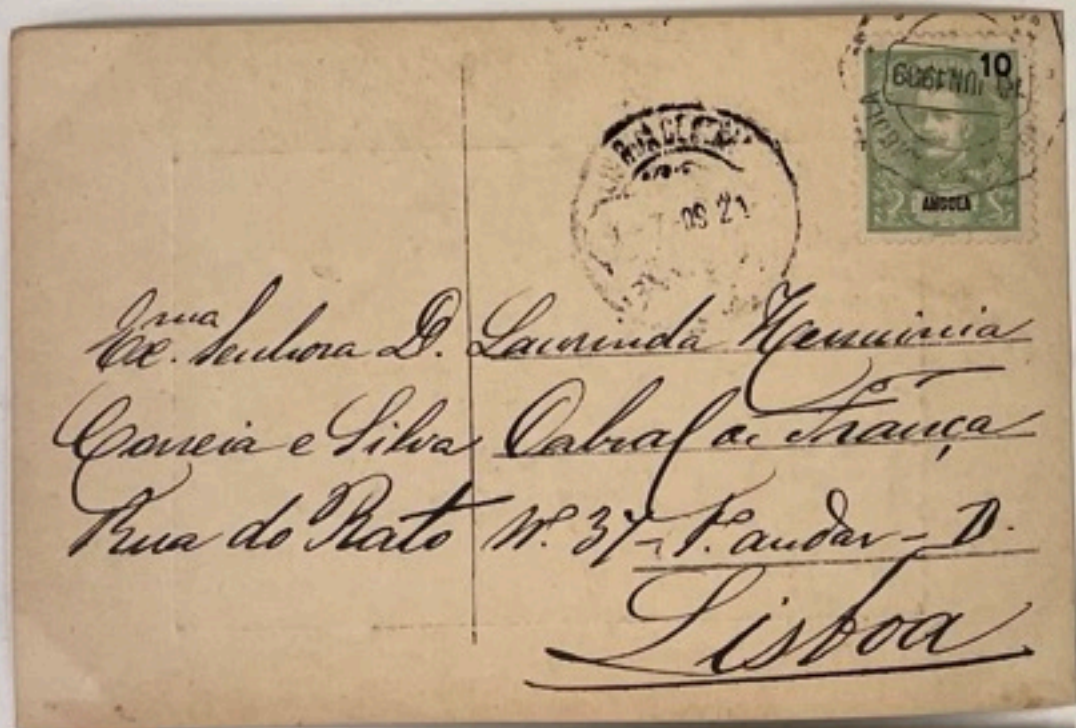 10
ANGOLA
JUN 1909
Exma. Senhora D. Laurinda Herminia
Correia e Silva Cabral de França
Rua do Rato Nº. 37 - 1º. andar - D.
Lisboa